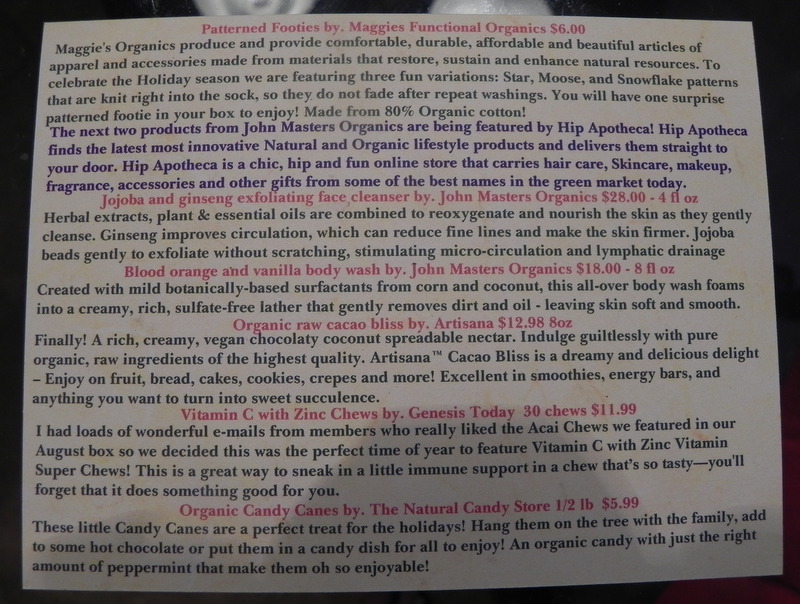 Patterned Footies by. Maggies Functional Organics $6.00
Maggie's Organics produce and provide comfortable, durable, affordable and beautiful articles of
apparel and accessories made from materials that restore, sustain and enhance natural resources. To
celebrate the Holiday season we are featuring three fun variations: Star, Moose, and Snowflake patterns
that are knit right into the sock, so they do not fade after repeat washings. You will have one surprise
patterned footie in your box to enjoy! Made from 80% Organic cotton!
The next two products from John Masters Organics are being featured by Hip Apotheca! Hip Apotheca
finds the latest most innovative Natural and Organic lifestyle products and delivers them straight to
your door. Hip Apotheca is a chic, hip and fun online store that carries hair care, Skincare, makeup,
fragrance, accessories and other gifts from some of the best names in the green market today.
Jojoba and ginseng exfoliating face cleanser by. John Masters Organics $28.00 - 4 fl oz
Herbal extracts, plant & essential oils are combined to reoxygenate and nourish the skin as they gently
cleanse. Ginseng improves circulation, which can reduce fine lines and make the skin firmer. Jojoba
beads gently to exfoliate without scratching, stimulating micro-circulation and lymphatic drainage
Blood orange and vanilla body wash by. John Masters Organics $18.00 - 8 fl oz
Created with mild botanically-based surfactants from corn and coconut, this all-over body wash foams
into a creamy, rich, sulfate-free lather that gently removes dirt and oil - leaving skin soft and smooth.
Organic raw cacao bliss by. Artisana $12.98 8oz
Finally! A rich, creamy, vegan chocolaty coconut spreadable nectar. Indulge guiltlessly with pure
organic, raw ingredients of the highest quality. Artisana™ Cacao Bliss is a dreamy and delicious delight
– Enjoy on fruit, bread, cakes, cookies, crepes and more! Excellent in smoothies, energy bars, and
anything you want to turn into sweet succulence.
Vitamin C with Zinc Chews by. Genesis Today 30 chews $11.99
I had loads of wonderful e-mails from members who really liked the Acai Chews we featured in our
August box so we decided this was the perfect time of year to feature Vitamin C with Zinc Vitamin
Super Chews! This is a great way to sneak in a little immune support in a chew that's so tasty—you'll
forget that it does something good for you.
Organic Candy Canes by. The Natural Candy Store 1/2 lb $5.99
These little Candy Canes are a perfect treat for the holidays! Hang them on the tree with the family, add
to some hot chocolate or put them in a candy dish for all to enjoy! An organic candy with just the right
amount of peppermint that make them oh so enjoyable!